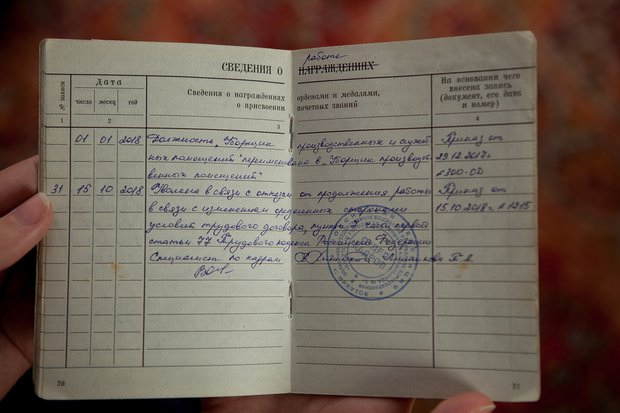 СВЕДЕНИЯ О работе НАГРАЖДЕНИЯХ
№ записи
Дата
число месяц год
Сведения о награждениях орденами и медалями,
о присвоении почетных званий
На основании чего
внесена запись
(документ, его дата
и номер)
1 2 3 4
01 01 2018 Должность „Уборщик производственных и служеб Приказ от
ных помещений" переименована в „Уборщик производст 29.12.2017г
венных помещений"
31 15 10 2018 Уволена в связи с отказом от продолжения работы Приказ от
в связи с изменением определенных сторонами 15.10.2018г к1215
условий трудового договора, пункт 7 части первой
статьи 77 Трудового кодекса Российской Федерации
Специалист по кадрам
ИРКУТСК
20
21